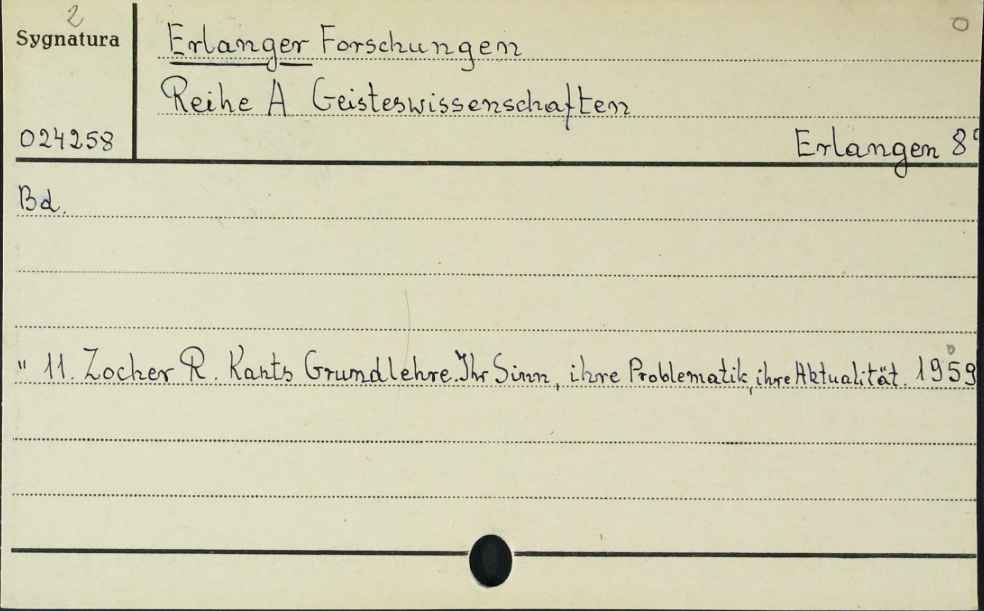 2
Sygnatura
Erlanger Forschungen
Reihe A Geisteswissenschaften
024258
Erlangen 8°
Bd.
" 11. Zocher R. Kants Grundlehre. Ihr Sinn, ihre Problematik, ihre Aktualität. 1959